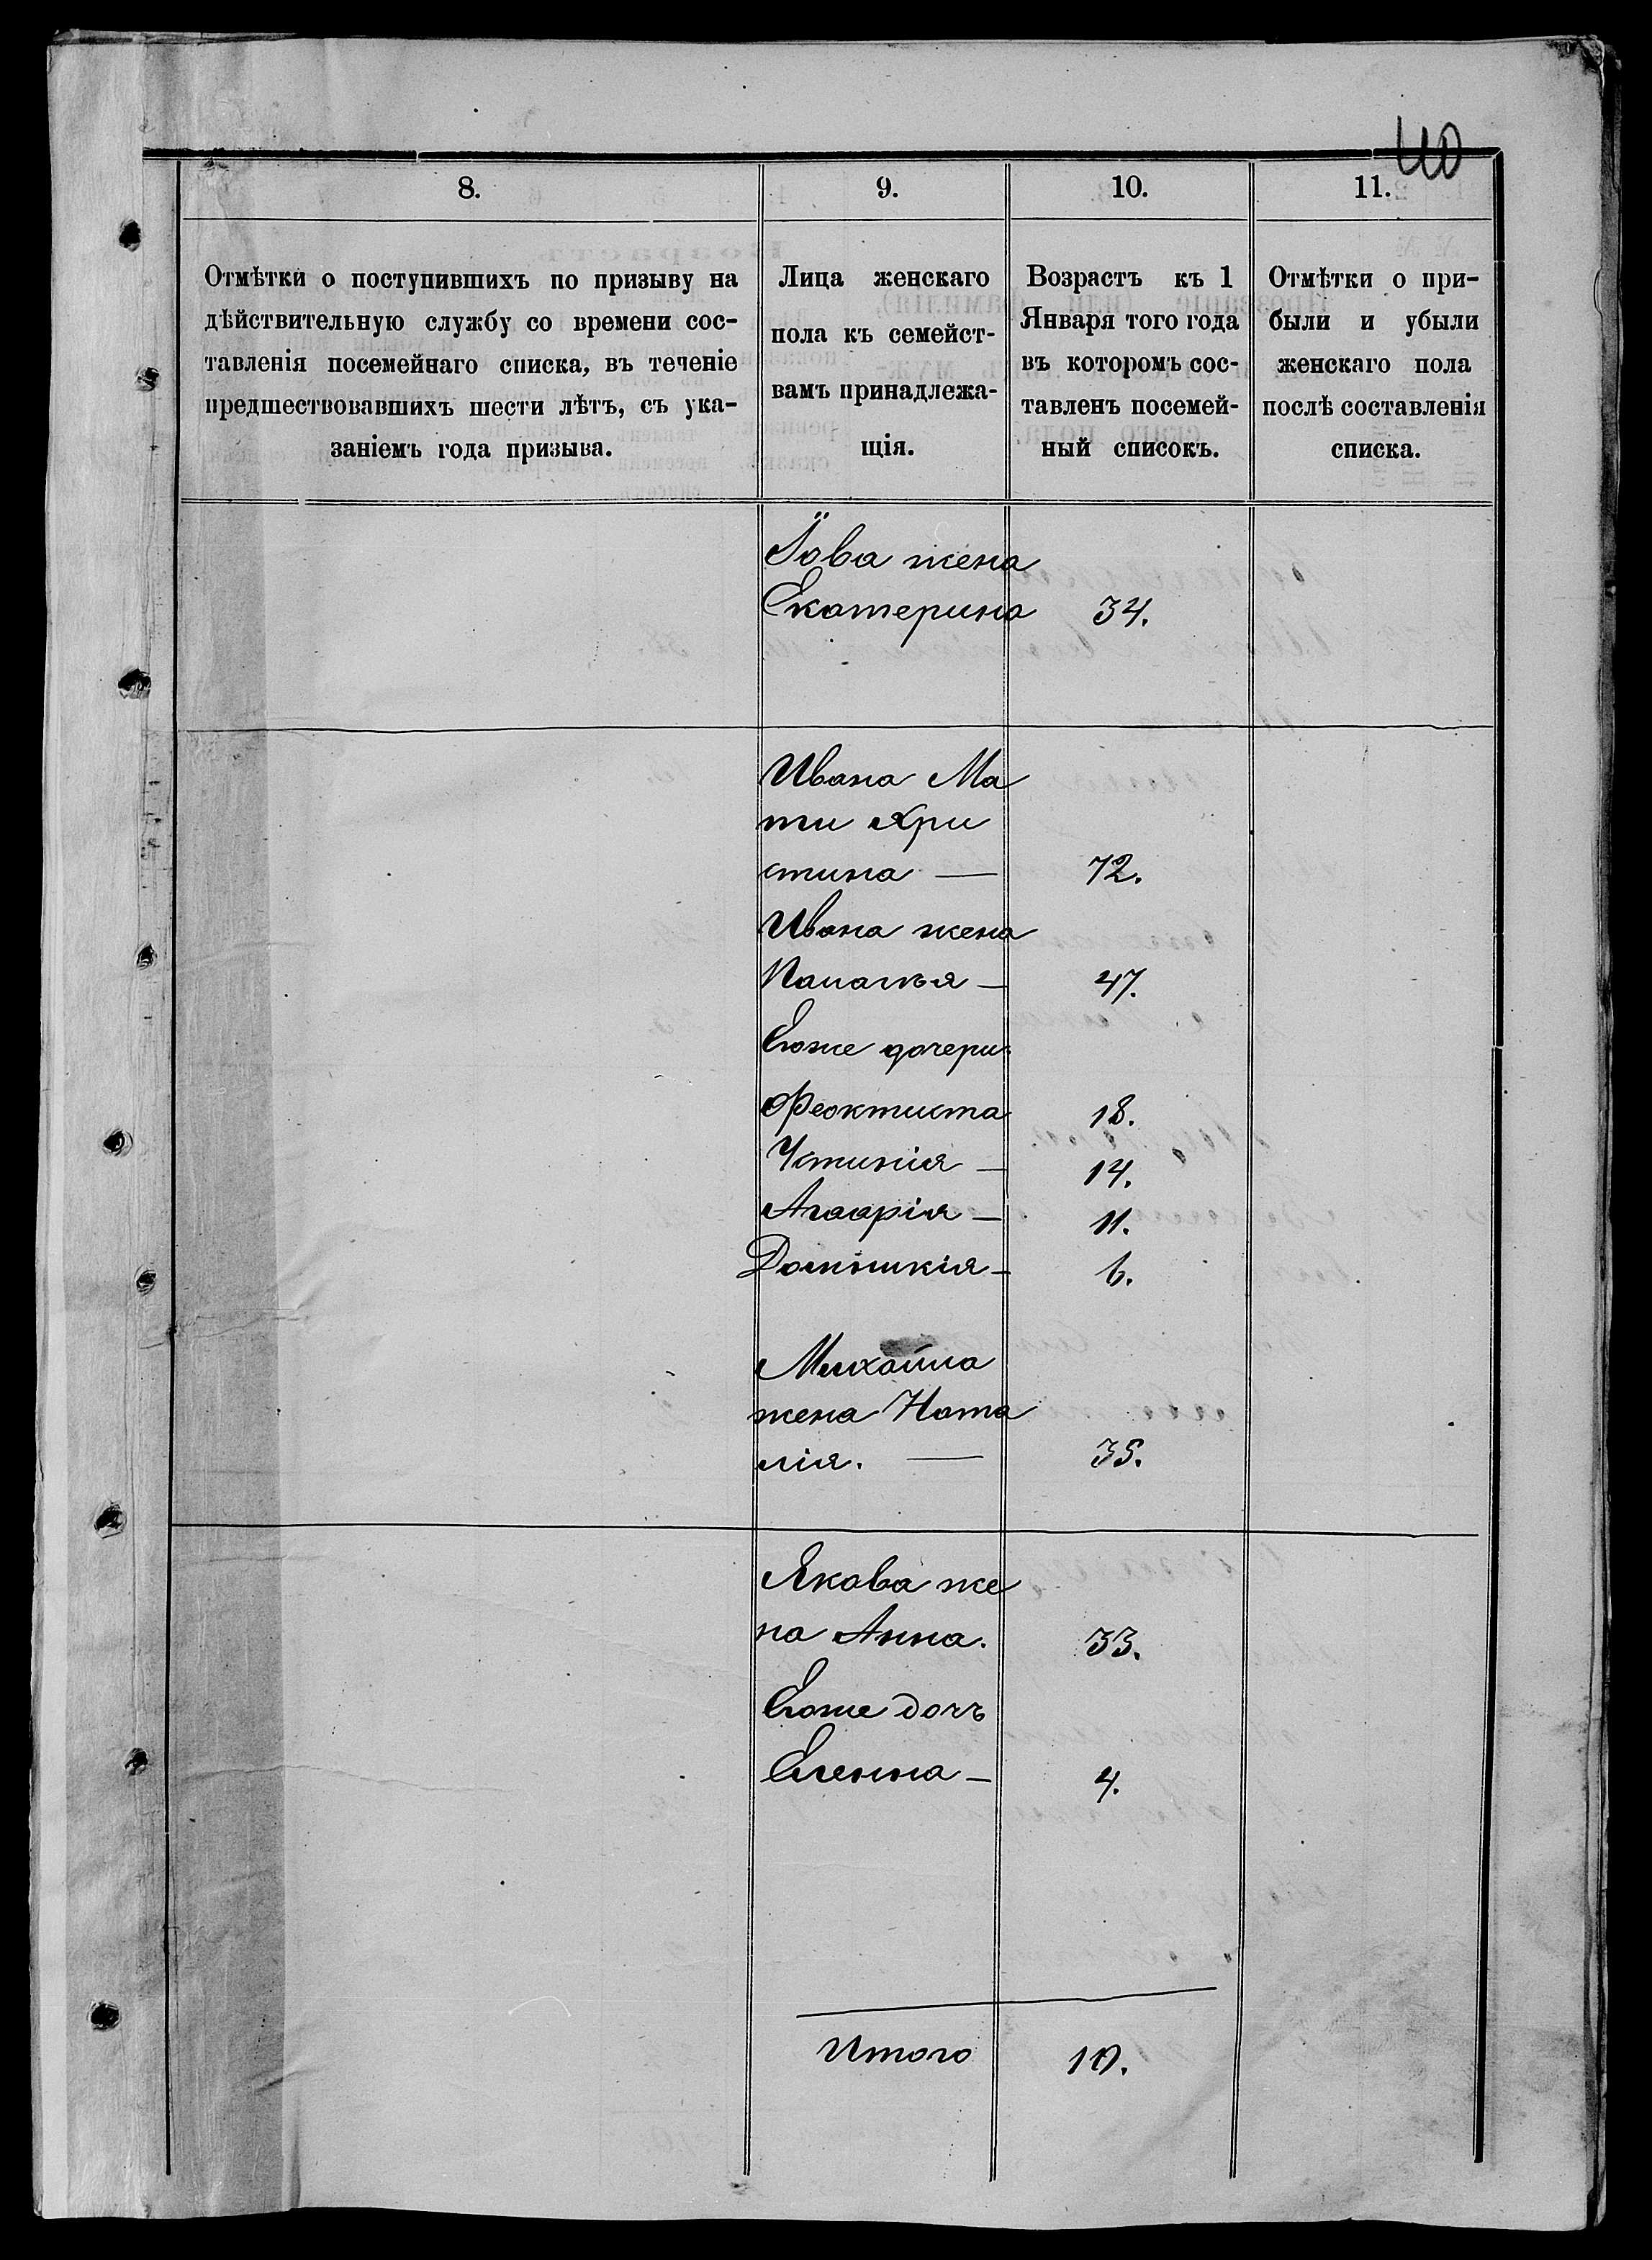 40
8.
9.
10.
11.
Отмѣтки о поступившихъ по призыву на
дѣйствительную службу со времени сос-
тавленія посемейнаго списка, въ теченіе
предшествовавшихъ шести лѣтъ, съ ука-
заніемъ года призыва.
Лица женскаго
пола къ семейст-
вамъ принадлежа-
щія.
Возрастъ къ 1
Января того года
въ которомъ сос-
тавленъ посемей-
ный списокъ.
Отмѣтки о при-
были и убыли
женскаго пола
послѣ составленія
списка.
Іова жена
Екатерина 34.
Ивана Ма
ти Хри
стина — 72.
Ивана жена
47.
Егоже дочери:
Феоктиста 18.
Устинія — 14.
11.
6.
Михаила
жена Ната
лія. — 35.
Якова же
на Анна. 33.
Егоже дочь
Еленна — 4.
Итого 10.